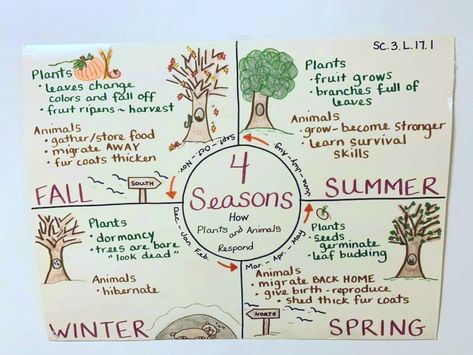 SC.3.L.17.1
Plants
• leaves change
colors and fall off
• fruit ripens ~ harvest
Animals
• gather/store food
• migrate AWAY
• fur coats thicken
FALL
SOUTH
Sept. - Oct. - Nov.
Plants
• fruit grows
• branches full of
leaves
Animals
• grow - become stronger
• learn survival
skills
SUMMER
June - July - Aug.
4
Seasons
How
Plants and Animals
Respond
Plants
• dormancy
• trees are bare
"look dead"
Animals
• hibernate
WINTER
Dec. - Jan. Feb.
Mar. - Apr. - May
Plants
• seeds
germinate
• leaf budding
Animals
• migrate BACK HOME
• give birth - reproduce
• shed thick fur coats
NORTH
SPRING